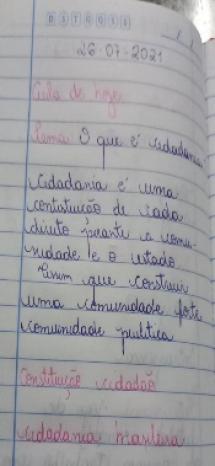 D S T Q Q S S
26-07-2021
Aula de hoje
Tema O que é cidadania
Cidadania é uma
de cada
direito perante a comu-
nidade e o estado
que construir
uma comunidade forte
comunidade
Constituição cidadão
cidadania brasileira